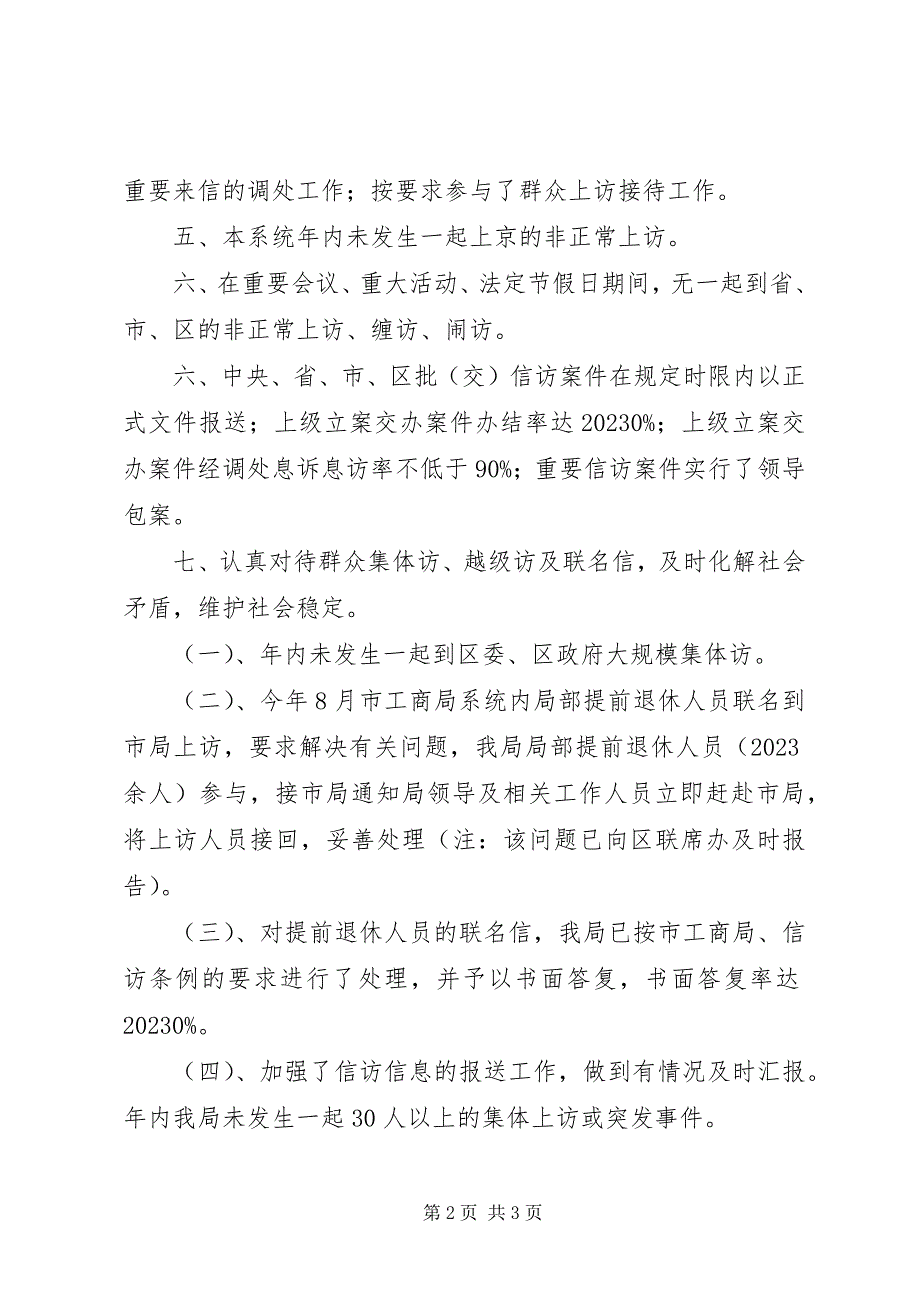 重要来信的调处工作；按要求参与了群众上访接待工作。
五、本系统年内未发生一起上京的非正常上访。
六、在重要会议、重大活动、法定节假日期间，无一起到省、
市、区的非正常上访、缠访、闹访。
六、中央、省、市、区批（交）信访案件在规定时限内以正
式文件报送；上级立案交办案件办结率达 20230%；上级立案交
办案件经调处息诉息访率不低于 90%；重要信访案件实行了领导
包案。
七、认真对待群众集体访、越级访及联名信，及时化解社会
矛盾，维护社会稳定。
（一）、年内未发生一起到区委、区政府大规模集体访。
（二）、今年 8 月市工商局系统内局部提前退休人员联名到
市局上访，要求解决有关问题，我局局部提前退休人员（2023
余人）参与，接市局通知局领导及相关工作人员立即赶赴市局，
将上访人员接回，妥善处理（注：该问题已向区联席办及时报
告）。
（三）、对提前退休人员的联名信，我局已按市工商局、信
访条例的要求进行了处理，并予以书面答复，书面答复率达
20230%。
（四）、加强了信访信息的报送工作，做到有情况及时汇报。
年内我局未发生一起 30 人以上的集体上访或突发事件。
第 2 页 共 3 页